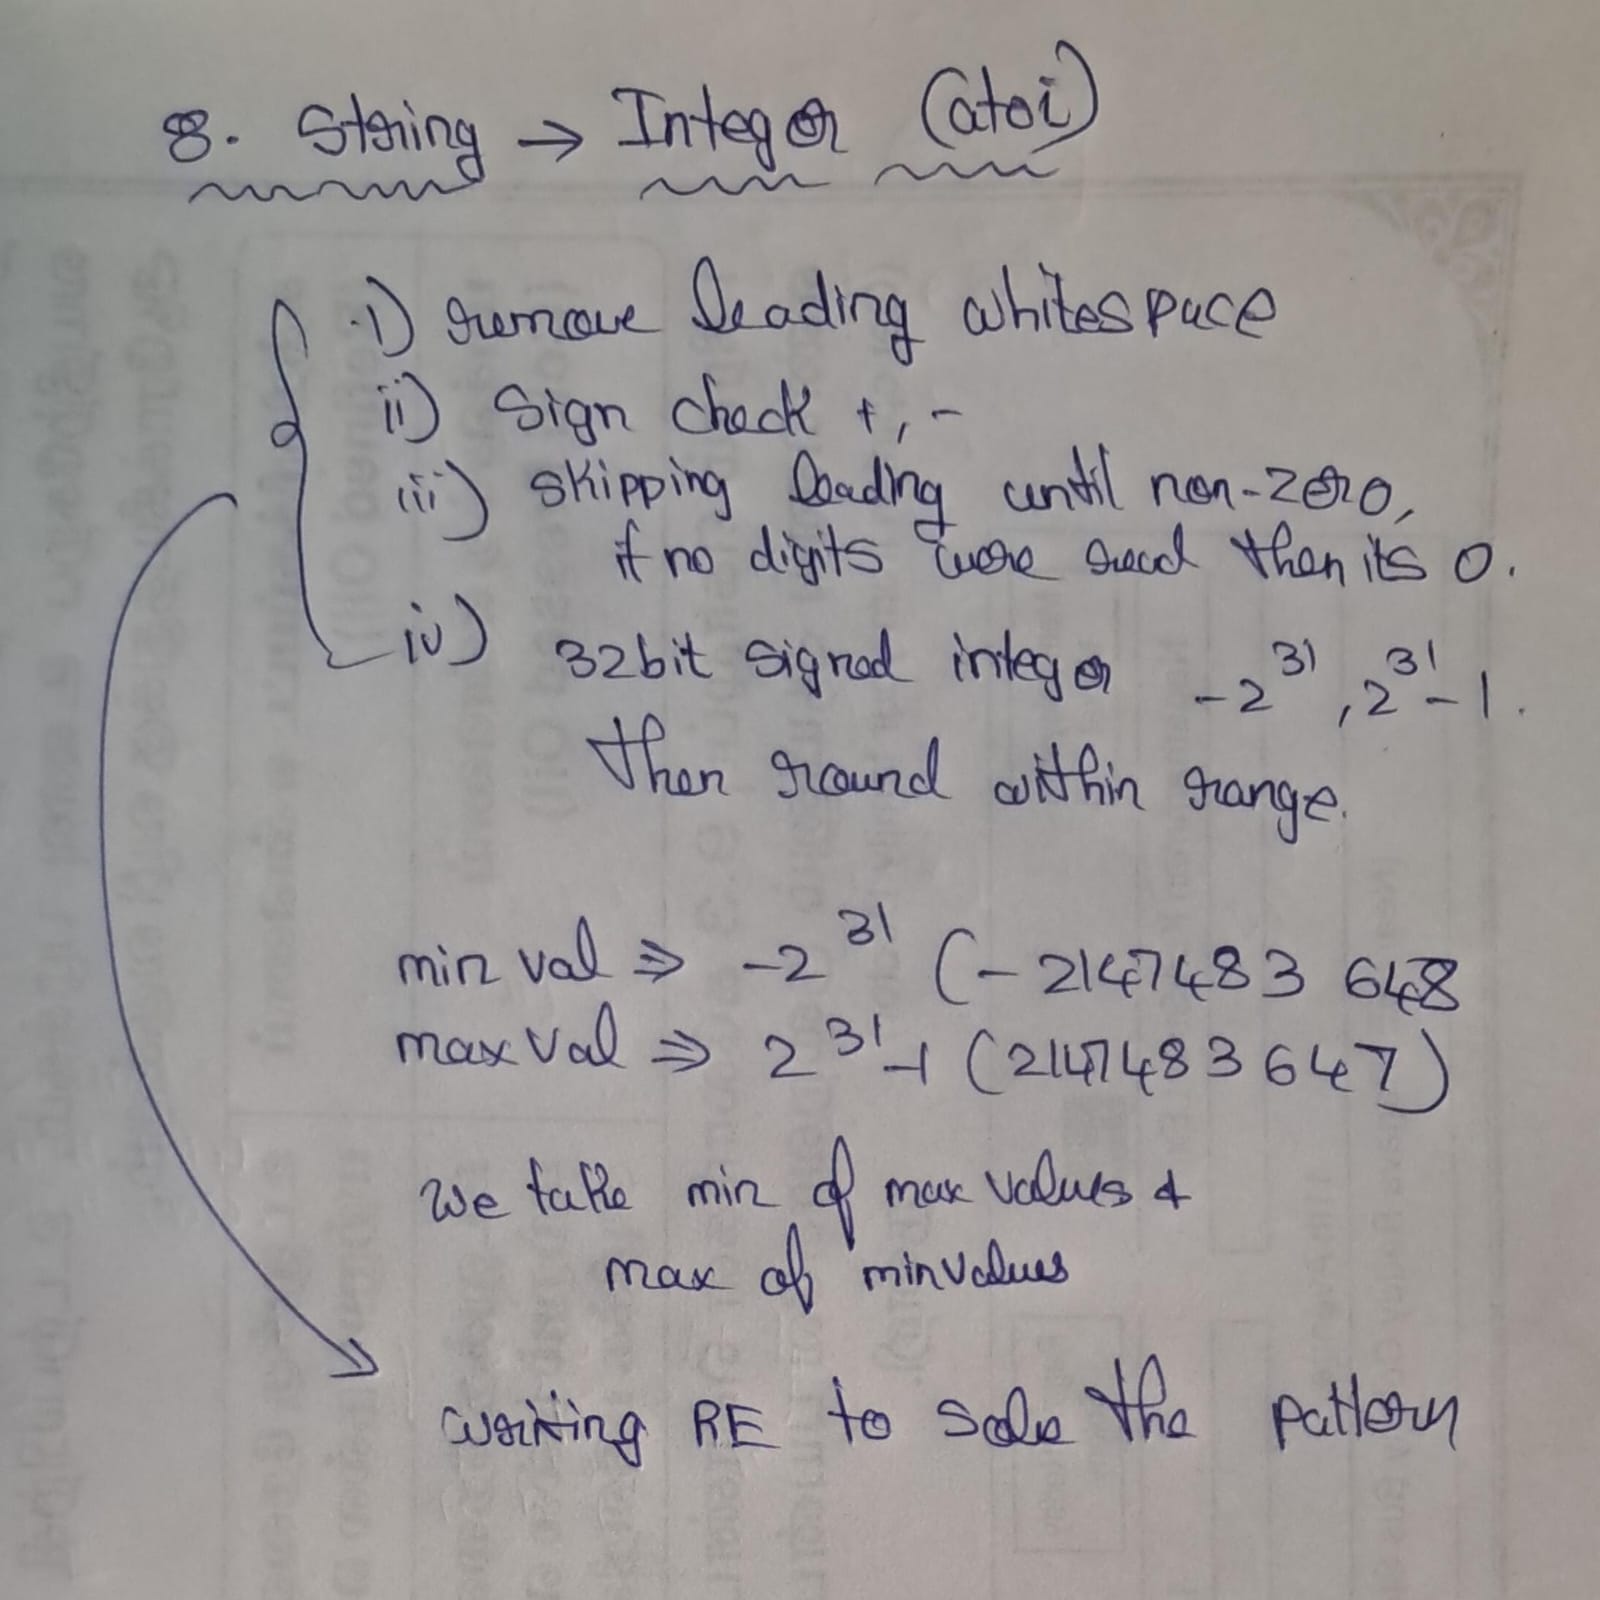 8. String → Integer (atoi)
i) remove leading whitespace
ii) Sign check +, -
iii) skipping leading until non-zero,
if no digits were read then its 0.
iv) 32bit signed integer -2^31, 2^31-1.
Then round within range.
min val ⇒ -2^31 (-2147483 648
max val ⇒ 2^31-1 (2147483647)
we take min of max values &
max of minvalues
writing RE to solve the pattern